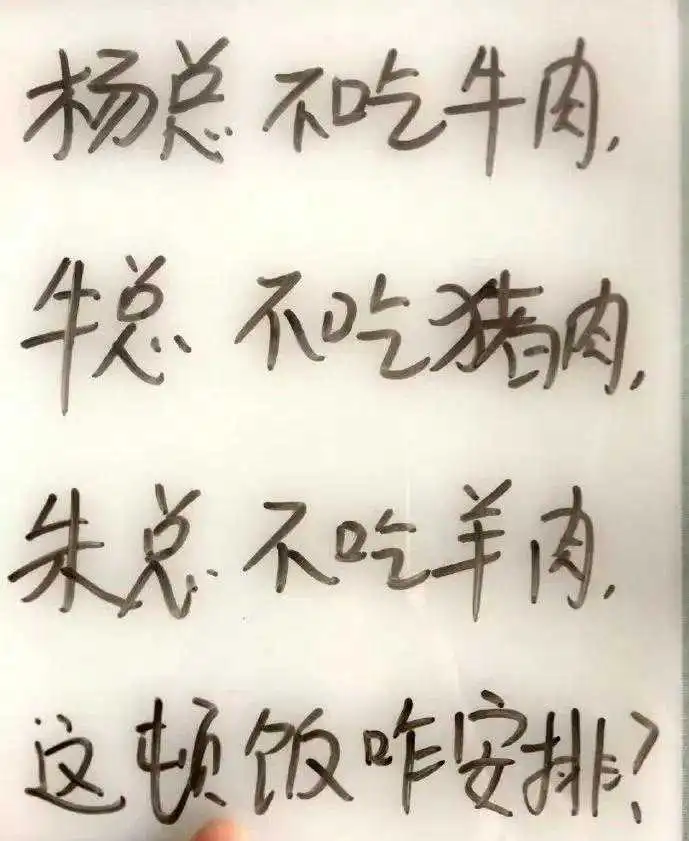 杨总不吃牛肉,
牛总不吃猪肉,
朱总不吃羊肉,
这顿饭咋安排?